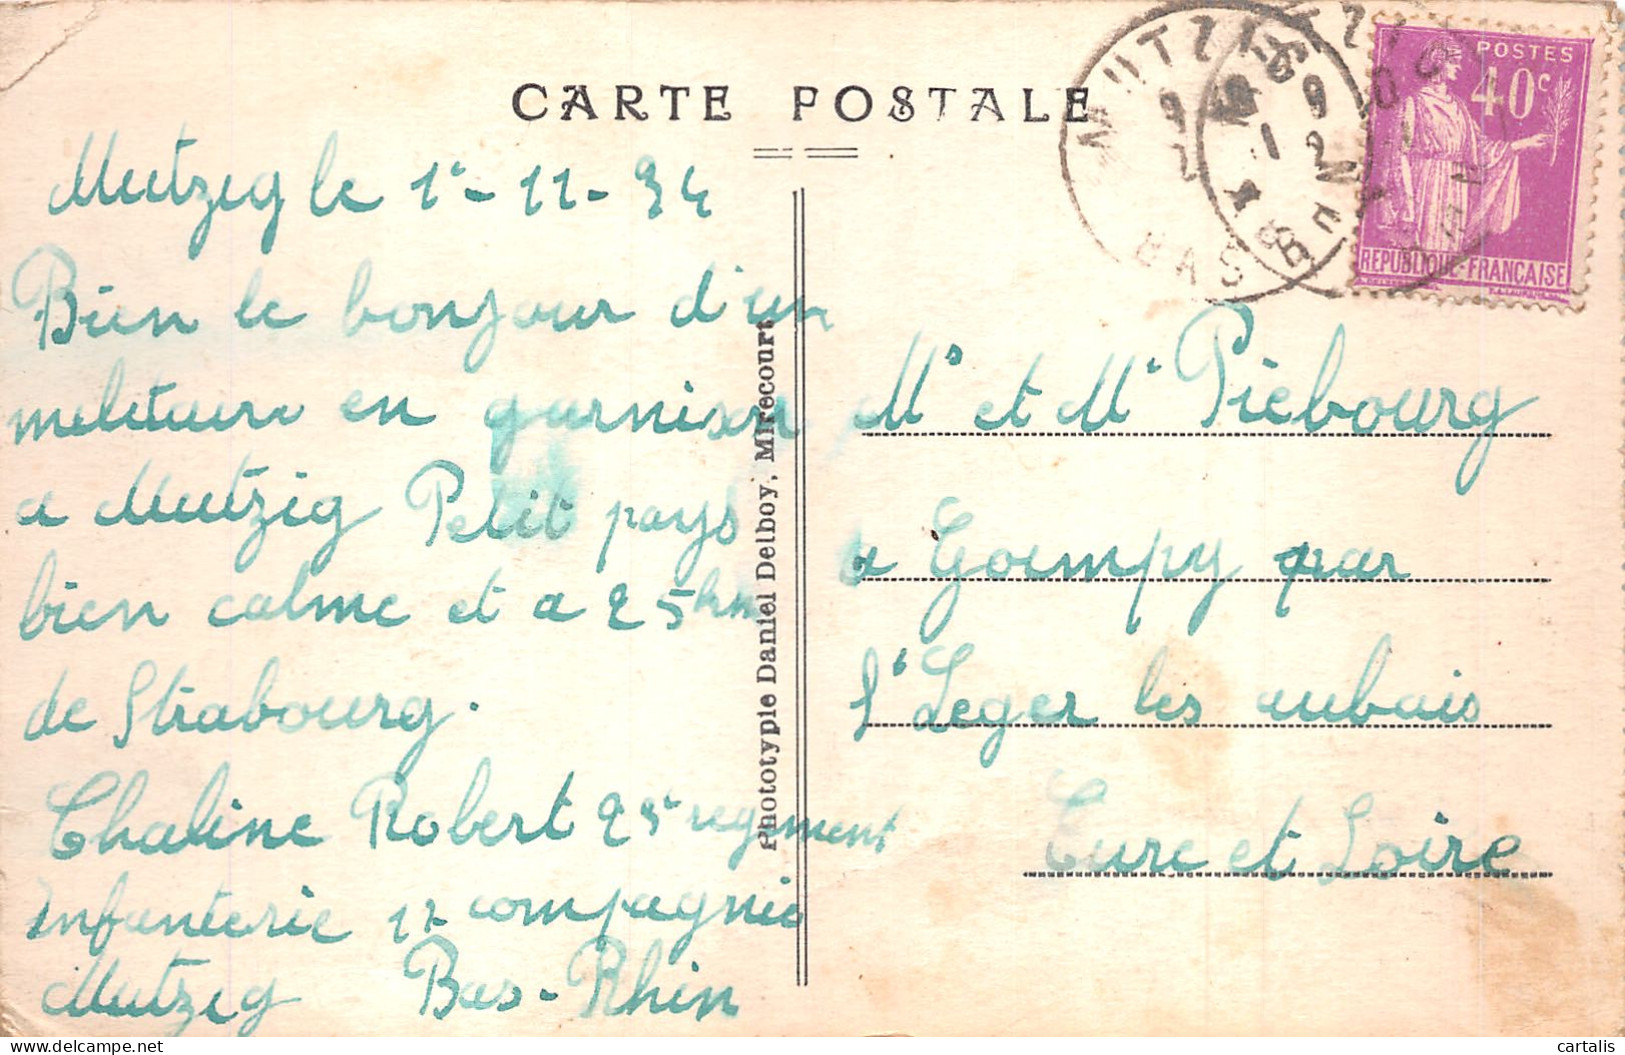 CARTE POSTALE
Mutzig le 1er - 11 - 34
Bien le bonjour d'un
militaire en garnison
a Mutzig Petit pays
bien calme et a 25 km
de Strabourg.
Chaline Robert 25e regiment
infanterie 11e compagnie
Mutzig Bas-Rhin
Phototypie Daniel Delboy, Mirecourt
MUTZIG
BAS RHIN
POSTES
40c
REPUBLIQUE-FRANÇAISE
Mr et Me Piebourg
a Goimpy par
St Leger les aubais
Eure et Loire
cartalis
delcampe.net